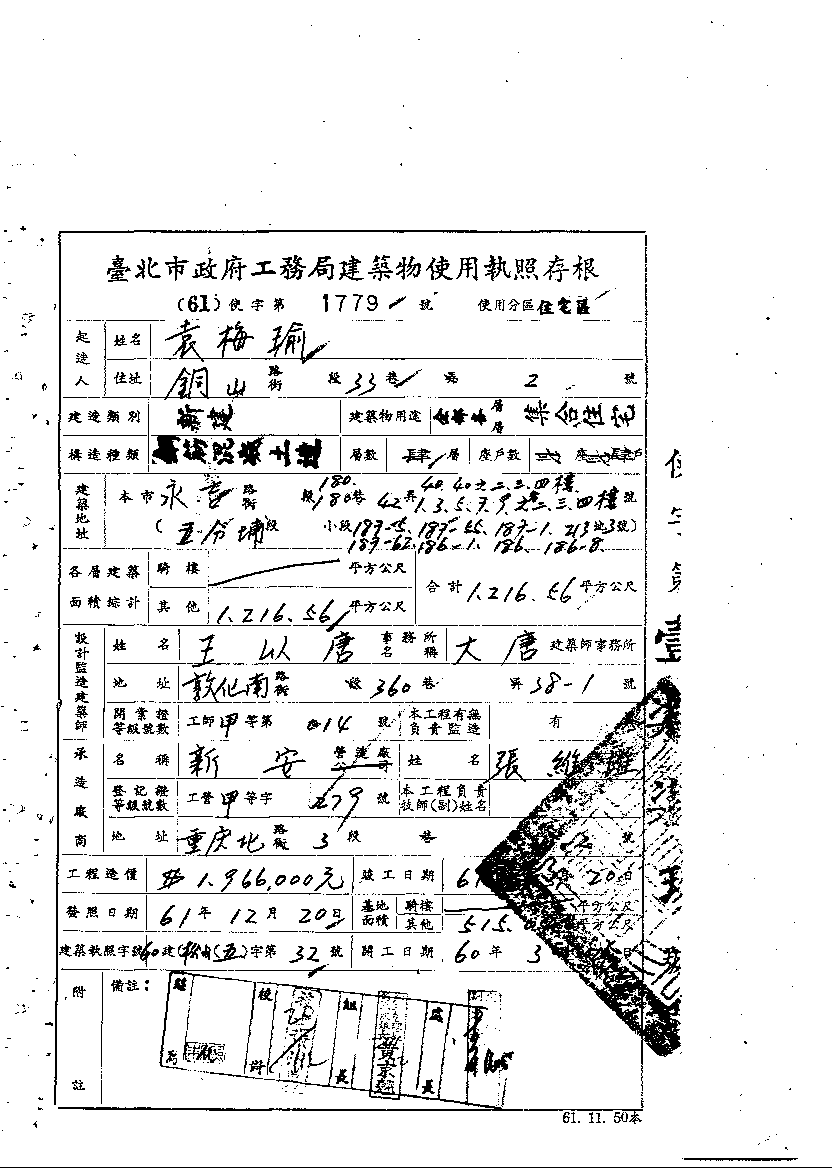 臺北市政府工務局建築物使用執照存根
(61)使字第 1779 號 使用分區住宅區
起造人 姓名 袁梅瑜
住址 銅山路街 段33巷 弄 2 號
建造類別 新建 建築物用途 層層 集合住宅
構造種類 鋼筋混凝土造 層數 肆層 座戶數 座 戶
建築地址 本市永吉路街 段180巷 42弄 40.40之二.三.四樓
1.3.5.7.9.之二.三.四樓號
(五分埔段 小段187-5.187-55.187-1.213地3號)
187-62.186-1.186.186-8.
各層建築面積綜計 騎樓 平方公尺 合計1,216.56平方公尺
其他 1,216.56平方公尺
設計監造建築師 姓名 王以唐 事務所名稱 大唐建築師事務所
地址 敦化南路街 段360巷 弄38-1號
開業證等級號數 工師甲等第 014 號 本工程有無負責監造 有
承造廠商 名稱 新安營造廠公司 姓名 張維雄
登記證等級號數 工營甲等字 279 號 本工程負責技師(副)姓名
地址 重庆北路街 3段 巷 號
工程造價 1,966,000元 竣工日期 61 20日
發照日期 61年12月20日 基地面積 騎樓 平方公尺
其他 515. 平方公尺
建築執照字號60建(松山)(五)字第 32 號 開工日期 60年3 日
附註 備註：
組長 處長
使字第壹
61.11.50本